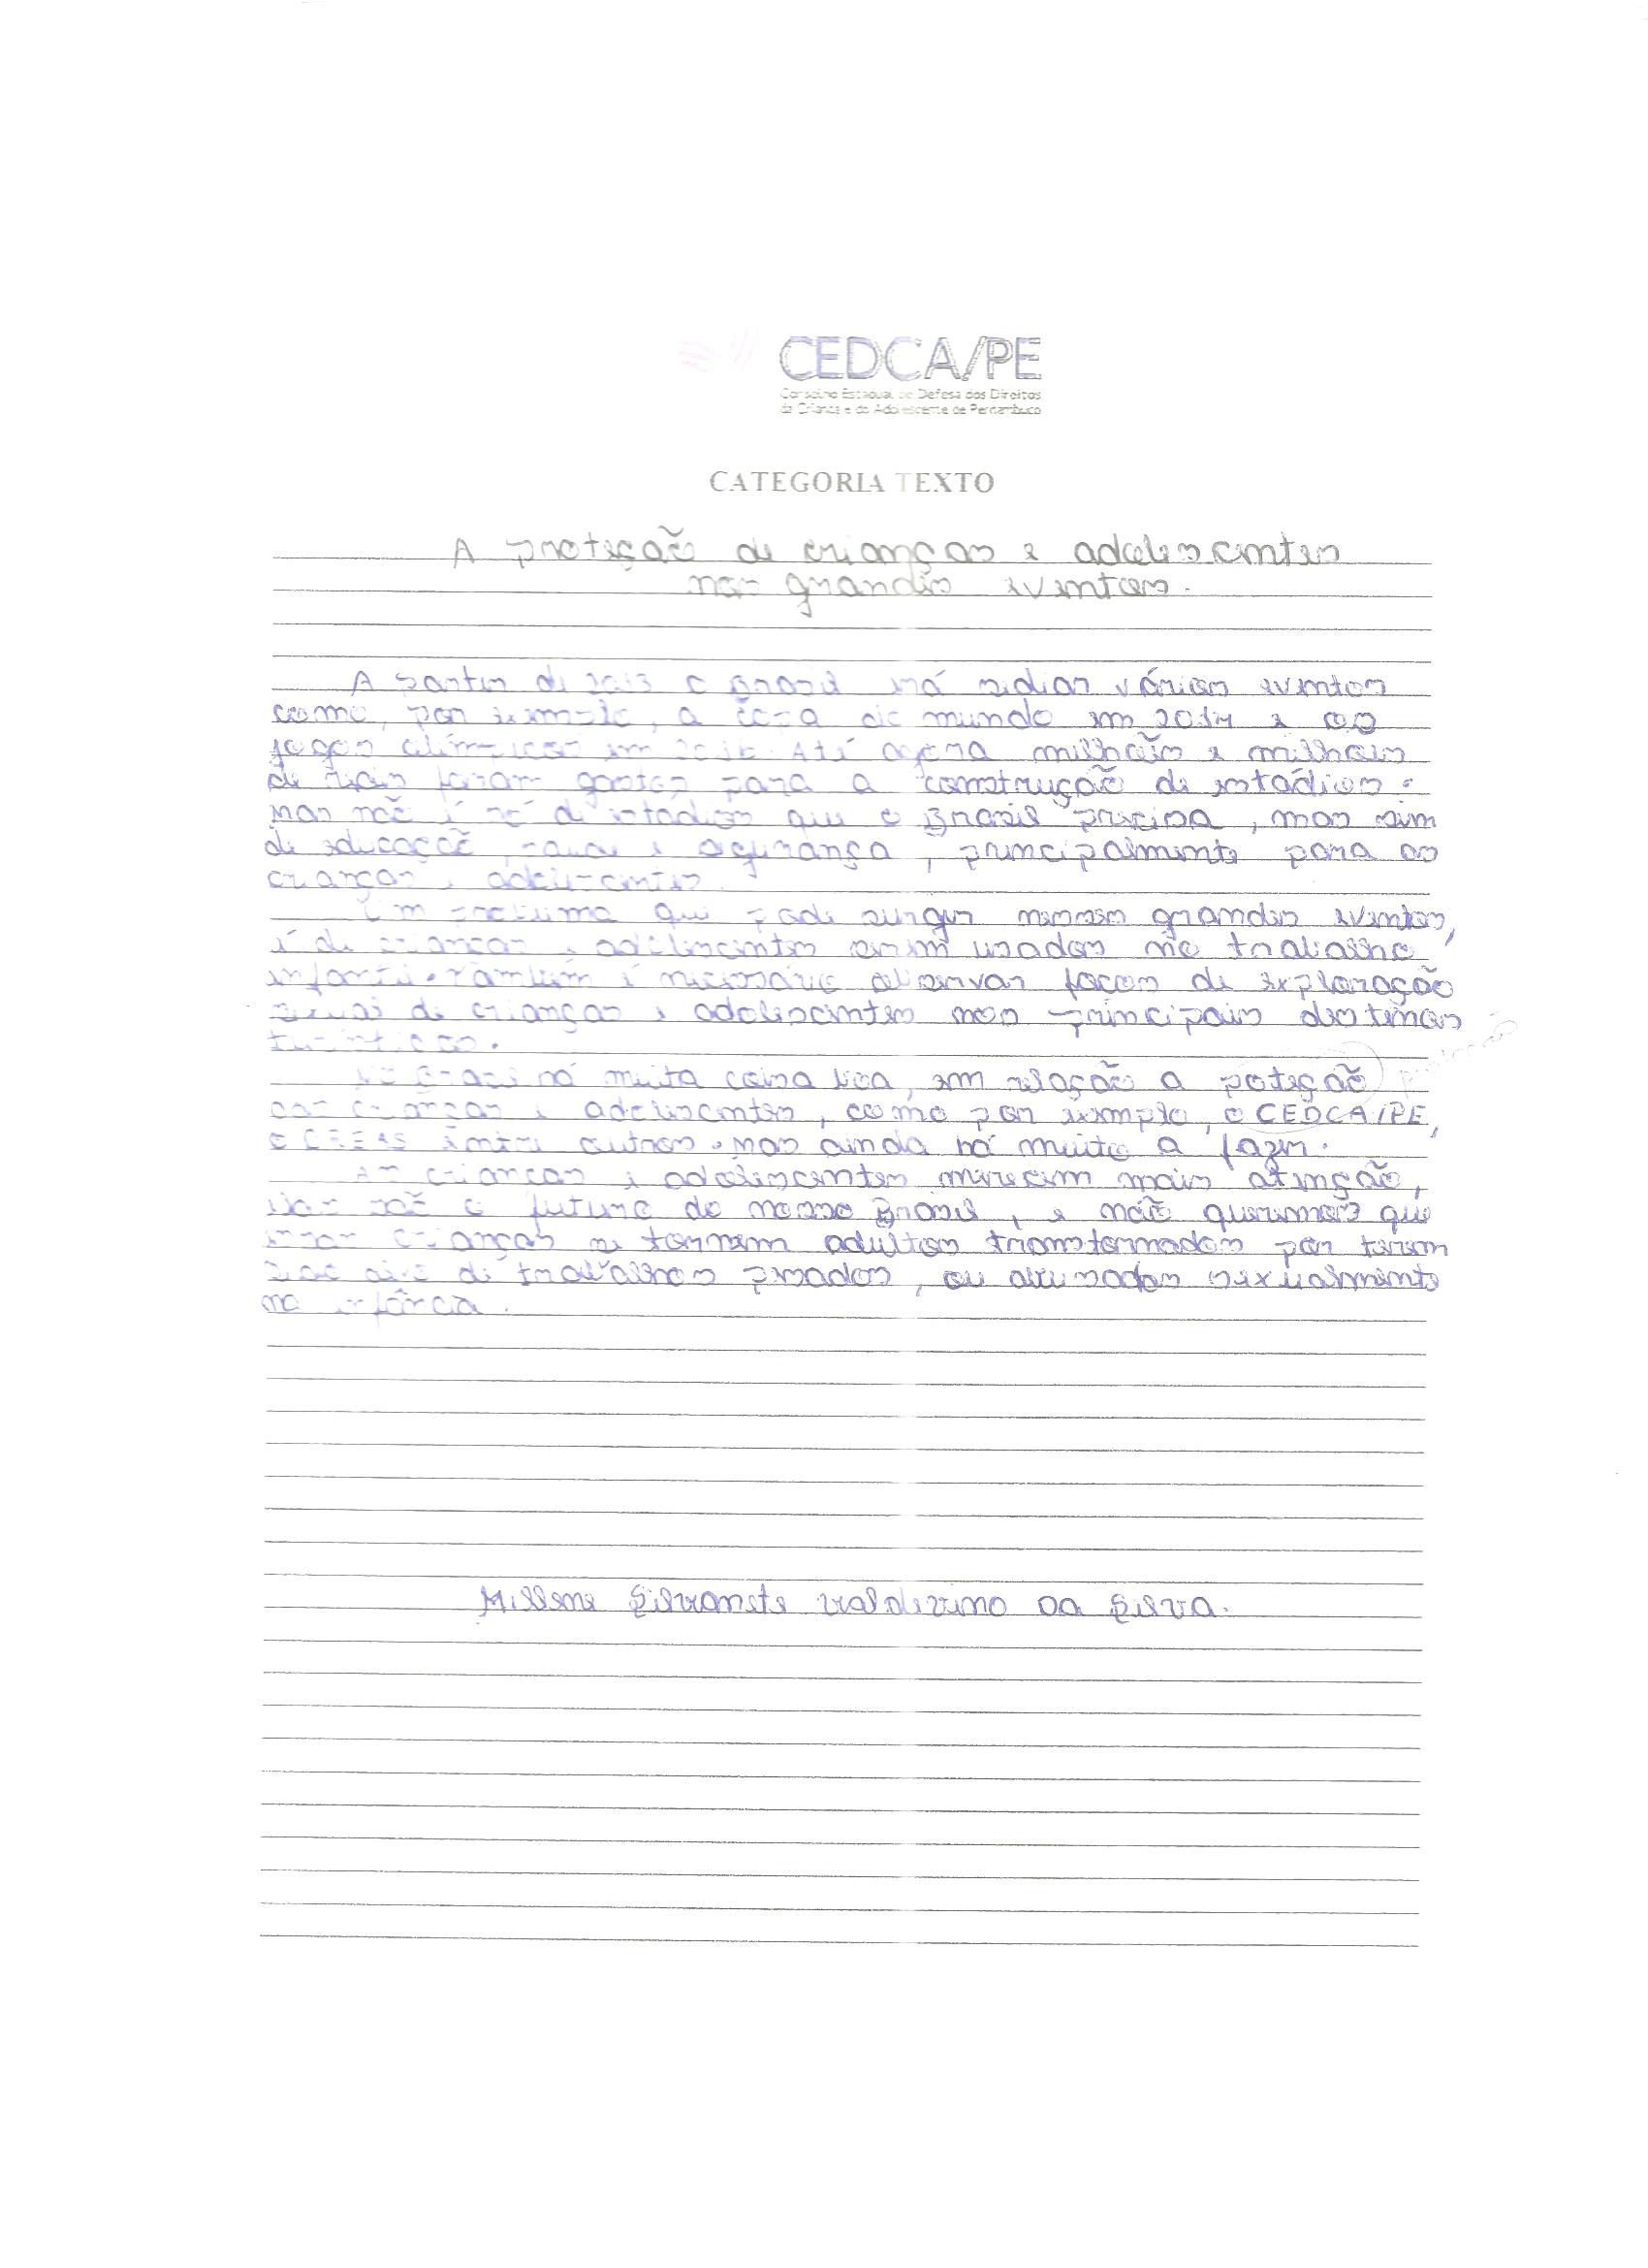 CEDCA/PE
Conselho Estadual de Defesa dos Direitos
da Criança e do Adolescente de Pernambuco
CATEGORIA TEXTO
A proteção de crianças e adolescentes
nos grandes eventos.
A partir de 2013 o Brasil irá sediar vários eventos
como, por exemplo, a copa do mundo em 2014 e os
jogos olímpicos em 2016. Até agora milhões e milhões
de reais foram gastos para a construção de estádios.
Mas não é só de estádios que o Brasil precisa, mas sim
de educação, saúde e segurança, principalmente para as
crianças e adolescentes.
Um problema que pode surgir nesses grandes eventos,
é de crianças e adolescentes serem usados no trabalho
infantil. Também é necessário observar focos de exploração
sexual de crianças e adolescentes nos principais destinos
turísticos.
No Brasil há muita coisa boa, em relação a poteção
das crianças e adolescentes, como por exemplo, o CEDCA/PE,
o CREAS entre outros. Mas ainda há muito a fazer.
As crianças e adolescentes merecem mais atenção,
eles são o futuro do nosso Brasil, e não queremos que
essas crianças se tornem adultos transtornados por terem
sido alvo de trabalhos pesados, ou abusados sexualmente
na infância.
Millene Silvanete Valdevino da Silva.